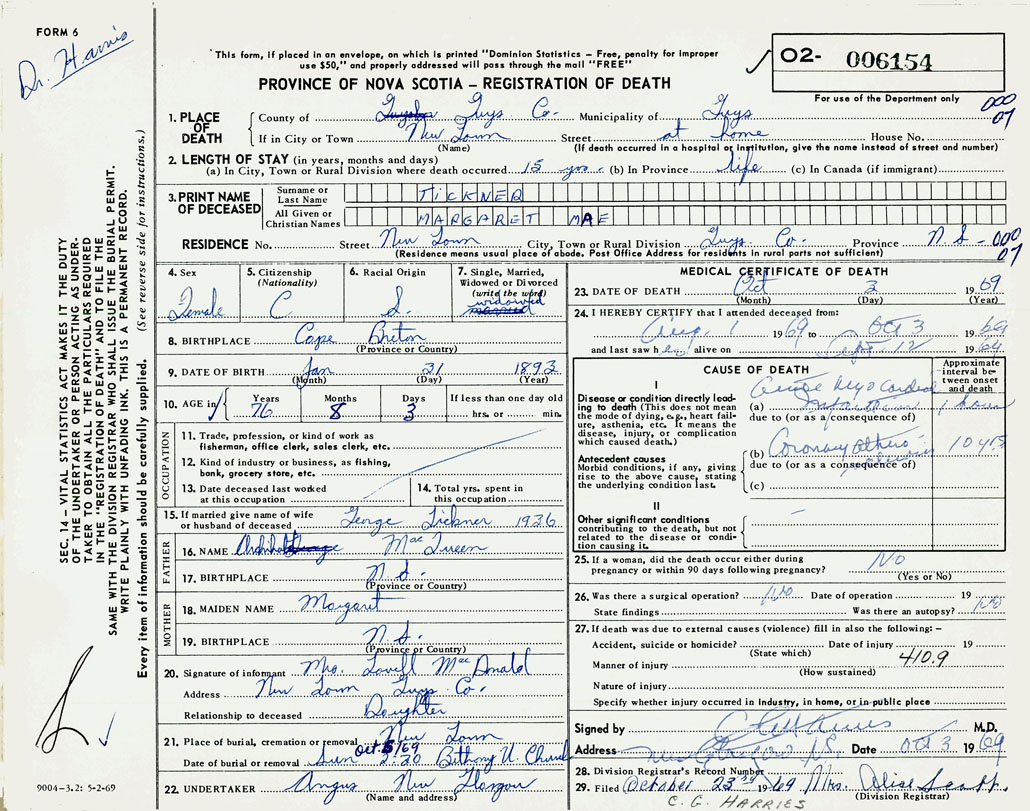 FORM 6
Dr. Harris
"This form, if placed in an envelope, on which is printed "Dominion Statistics – Free, penalty for improper
use $50," and properly addressed will pass through the mail "FREE"
02- 006154
For use of the Department only
PROVINCE OF NOVA SCOTIA – REGISTRATION OF DEATH
000
07
1. PLACE OF DEATH
County of Guys Co. Municipality of Guys
If in City or Town New Town Street at home House No.
(Name) (If death occurred in a hospital or institution, give the name instead of street and number)
2. LENGTH OF STAY (in years, months and days)
(a) In City, Town or Rural Division where death occurred 15 yrs. (b) In Province life (c) In Canada (if immigrant)
3. PRINT NAME OF DECEASED
Surname or Last Name TICKNER
All Given or Christian Names MARGARET MAE
RESIDENCE No. Street New Town City, Town or Rural Division Guys Co. Province N.S- 000
07
(Residence means usual place of abode. Post Office Address for residents in rural parts not sufficient)
4. Sex
Female
5. Citizenship
(Nationality)
C
6. Racial Origin
S.
7. Single, Married,
Widowed or Divorced
(write the word)
widowed
married
8. BIRTHPLACE Cape Breton
(Province or Country)
9. DATE OF BIRTH Jan 31 1893
(Month) (Day) (Year)
10. AGE in
Years Months Days If less than one day old
76 8 3 hrs. or min.
OCCUPATION
11. Trade, profession, or kind of work as
fisherman, office clerk, sales clerk, etc.
12. Kind of industry or business, as fishing,
bank, grocery store, etc.
13. Date deceased last worked
at this occupation
14. Total yrs. spent in
this occupation
15. If married give name of wife
or husband of deceased George Tickner 1936
FATHER
16. NAME Archibald George MacQueen
17. BIRTHPLACE N.S.
(Province or Country)
MOTHER
18. MAIDEN NAME Margaret
19. BIRTHPLACE N.S.
(Province or Country)
20. Signature of informant Mrs. Lovell MacDonald
Address New Town Guys Co.
Relationship to deceased Daughter
21. Place of burial, cremation or removal New Town
Oct 5/69
Date of burial or removal Sun 2:30 Bethony U. Church
22. UNDERTAKER Angus New Glasgow
(Name and address)
MEDICAL CERTIFICATE OF DEATH
23. DATE OF DEATH Oct 3 1969
(Month) (Day) (Year)
24. I HEREBY CERTIFY that I attended deceased from:
Aug. 1 1969 to Oct 3 1969
and last saw her alive on Sept. 12 1969
CAUSE OF DEATH
Approximate interval between onset and death
I
Disease or condition directly leading
to death (This does not
mean the mode of dying, e.g., heart failure,
asthenia, etc. It means the
disease, injury, or complication
which caused death.)
(a) Acute Myocardial Infarction 1 hour
due to (or as a consequence of)
Antecedent causes
Morbid conditions, if any, giving
rise to the above cause, stating
the underlying condition last.
(b) Coronary 10 yrs
due to (or as a consequence of)
(c)
II
Other significant conditions
contributing to the death, but not
related to the disease or condition
causing it.
25. If a woman, did the death occur either during
pregnancy or within 90 days following pregnancy? No
(Yes or No)
26. Was there a surgical operation? No Date of operation 19
State findings Was there an autopsy? No
27. If death was due to external causes (violence) fill in also the following: –
Accident, suicide or homicide? Date of injury 19
(State which)
410.9
Manner of injury
(How sustained)
Nature of injury
Specify whether injury occurred in industry, in home, or in public place
Signed by M.D.
Address New Glasgow N.S. Date Oct 3 1969
28. Division Registrar's Record Number
29. Filed October 23rd 1969 Mrs. Alice
(Division Registrar)
C. G. HARRIES
SEC. 14 – VITAL STATISTICS ACT MAKES IT THE DUTY
OF THE UNDERTAKER OR PERSON ACTING AS UNDERTAKER
TO OBTAIN ALL THE PARTICULARS REQUIRED
IN THE "REGISTRATION OF DEATH" AND TO FILE THE
SAME WITH THE DIVISION REGISTRAR WHO SHALL ISSUE THE BURIAL PERMIT.
WRITE PLAINLY WITH UNFADING INK. THIS IS A PERMANENT RECORD.
Every item of information should be carefully supplied. (See reverse side for instructions.)
9004-3.2: 5-2-69